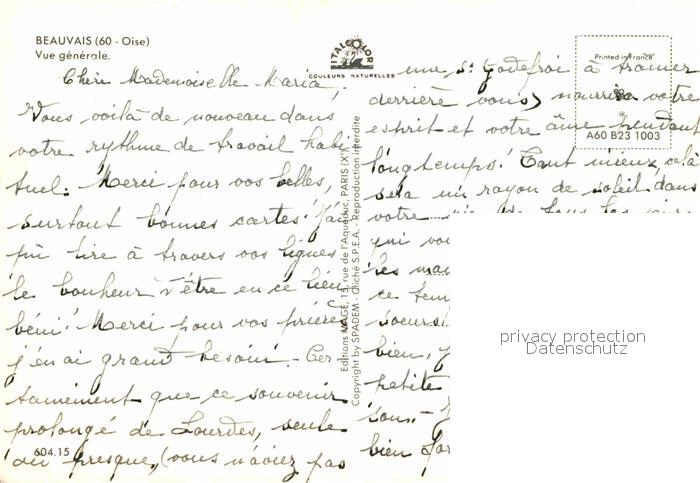 BEAUVAIS (60 - Oise)
Vue générale.
ITALCOLOR
COULEURS NATURELLES
Printed in France
A60 B23 1003
Chère Mademoiselle Maria,
Vous voilà de nouveau dans
votre rythme de travail habi
tuel. Merci pour vos belles,
surtout bonnes cartes! J'ai
pu lire à travers vos lignes
le bonheur d'être en ce lieu
béni! Merci pour vos prières
j'en ai grand besoin. Cer
tainement que ce souvenir
prolongé de Lourdes, seule
ou presque, (vous n'aviez pas
604.15
Editions MAGE, 15, rue de l'Aqueduc, PARIS (X
Copyright by SPADEM - Cliché S.P.E.A. - Reproduction interdite
une St Godefroi à tramer
derrière vous) nourrira votre
esprit et votre âme pendant
longtemps! Tant mieux, celà
sera un rayon de soleil dans
votre
qui vou
ce tem
soeurs
bien,
petite
bien
privacy protection
Datenschutz